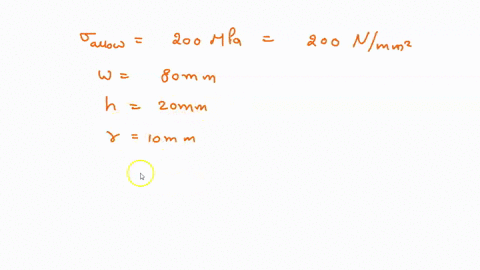 σallow = 200 MPa = 200 N/mm²
w = 80mm
h = 20mm
r = 10mm